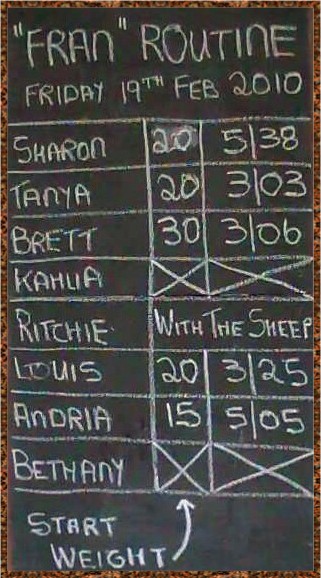 "FRAN" ROUTINE
FRIDAY 19TH FEB 2010
SHARON 20 5/38
TANYA 20 3/03
BRETT 30 3/06
KAHLIA
RITCHIE WITH THE SHEEP
LOUIS 20 3/25
ANDRIA 15 5/05
BETHANY
START
WEIGHT